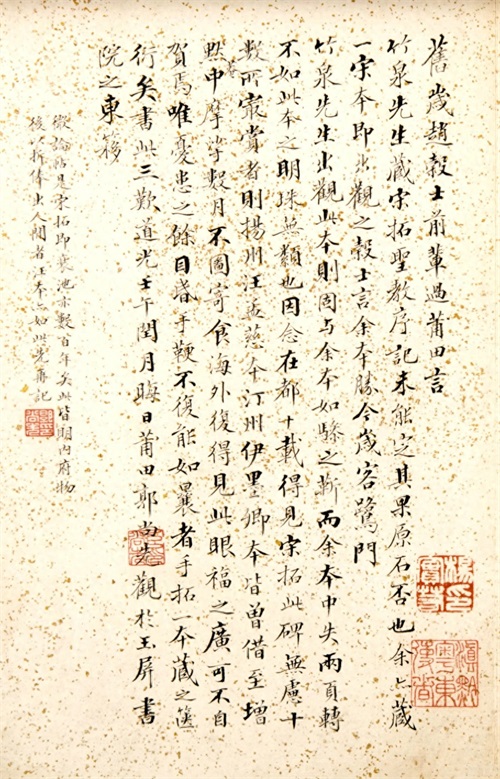 舊歲趙穀士前輩過莆田言
竹泉先生藏宋拓聖教序記未能定其果原石否也余亦藏
一宋本即出觀之穀士言余本勝今歲客鷺門
竹泉先生出觀此本則固与余本如驂之靳而余本中失兩頁轉
不如此本之明珠無纇也因念在都十載得見宋拓此碑無慮十
數所最賞者則揚州汪孟慈本汀州伊墨卿本皆曾借至增
默庵中摩挲數月不圖寄食海外復得見此眼福之廣可不自
賀焉唯憂患之餘目眊手鞕不復能如曩者手拓一本藏之篋
衍矣書此三歎道光壬午閏月晦日莆田郭尚先觀於玉屏書
院之東簃
微論此是宋拓即裝池亦數百年矣此皆明內府物
後以折俸出人間者汪本亦如此先再記